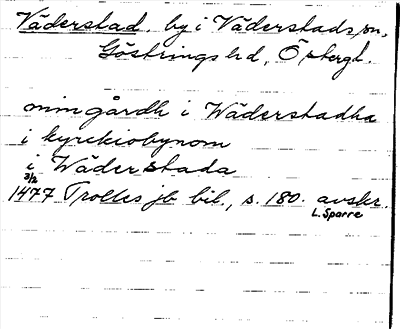 Väderstad. by i Väderstads sn,
Göstrings hd, Östergl.
min gårdh i Wäderstadha
i kyrekiobynom
i Wäderstada
3/2
1477 Trolles jb bil., s. 180. avskr.
L. Sparre